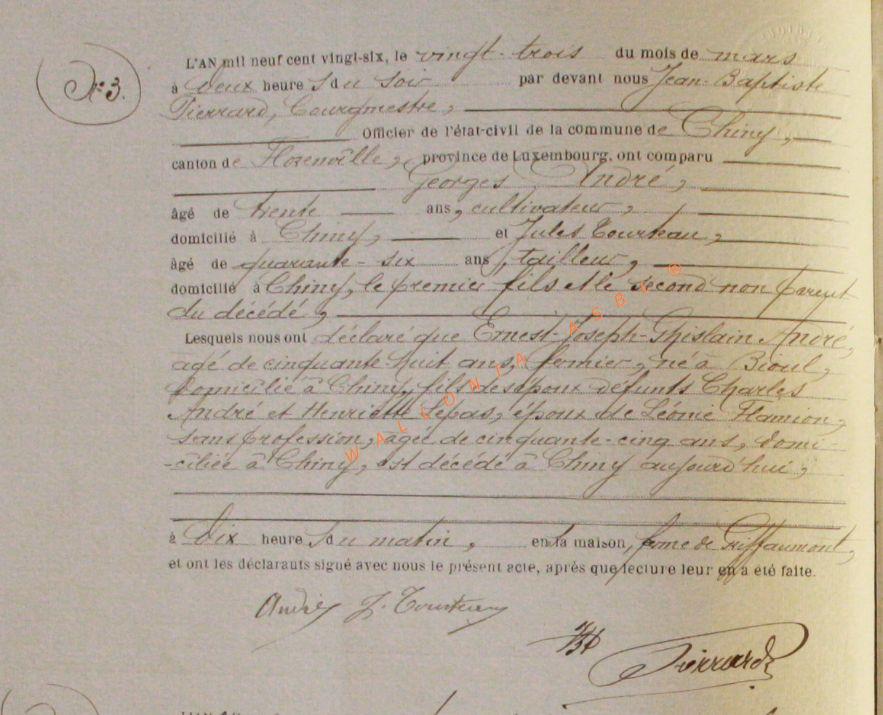 N° 3.
L'AN mil neuf cent vingt-six, le vingt-trois du mois de mars
à deux heures du soir par devant nous Jean-Baptiste
Pierrard, Bourgmestre,
Officier de l'état-civil de la commune de Chiny,
canton de Florenville, province de Luxembourg, ont comparu
Georges André,
âgé de trente ans, cultivateur,
domicilié à Chiny, et Jules
âgé de quarante-six ans, tailleur,
domicilié à Chiny, le premier fils et le second non parent
du décédé,
Lesquels nous ont déclaré que Ernest-Joseph-Ghislain André,
âgé de cinquante-huit ans, fermier, né à Bioul,
domicilié à Chiny, fils des époux défunts Charles
André et Henriette Lepas, époux de Léonie Flamion,
sans profession, âgée de cinquante-cinq ans, domi-
-ciliée à Chiny, est décédé à Chiny aujourd'hui,
à dix heures du matin, en sa maison, ferme de Griffaumont,
et ont les déclarants signé avec nous le présent acte, après que lecture leur en a été faite.
André J.
Pierrard
WALLONIA ASBL ©